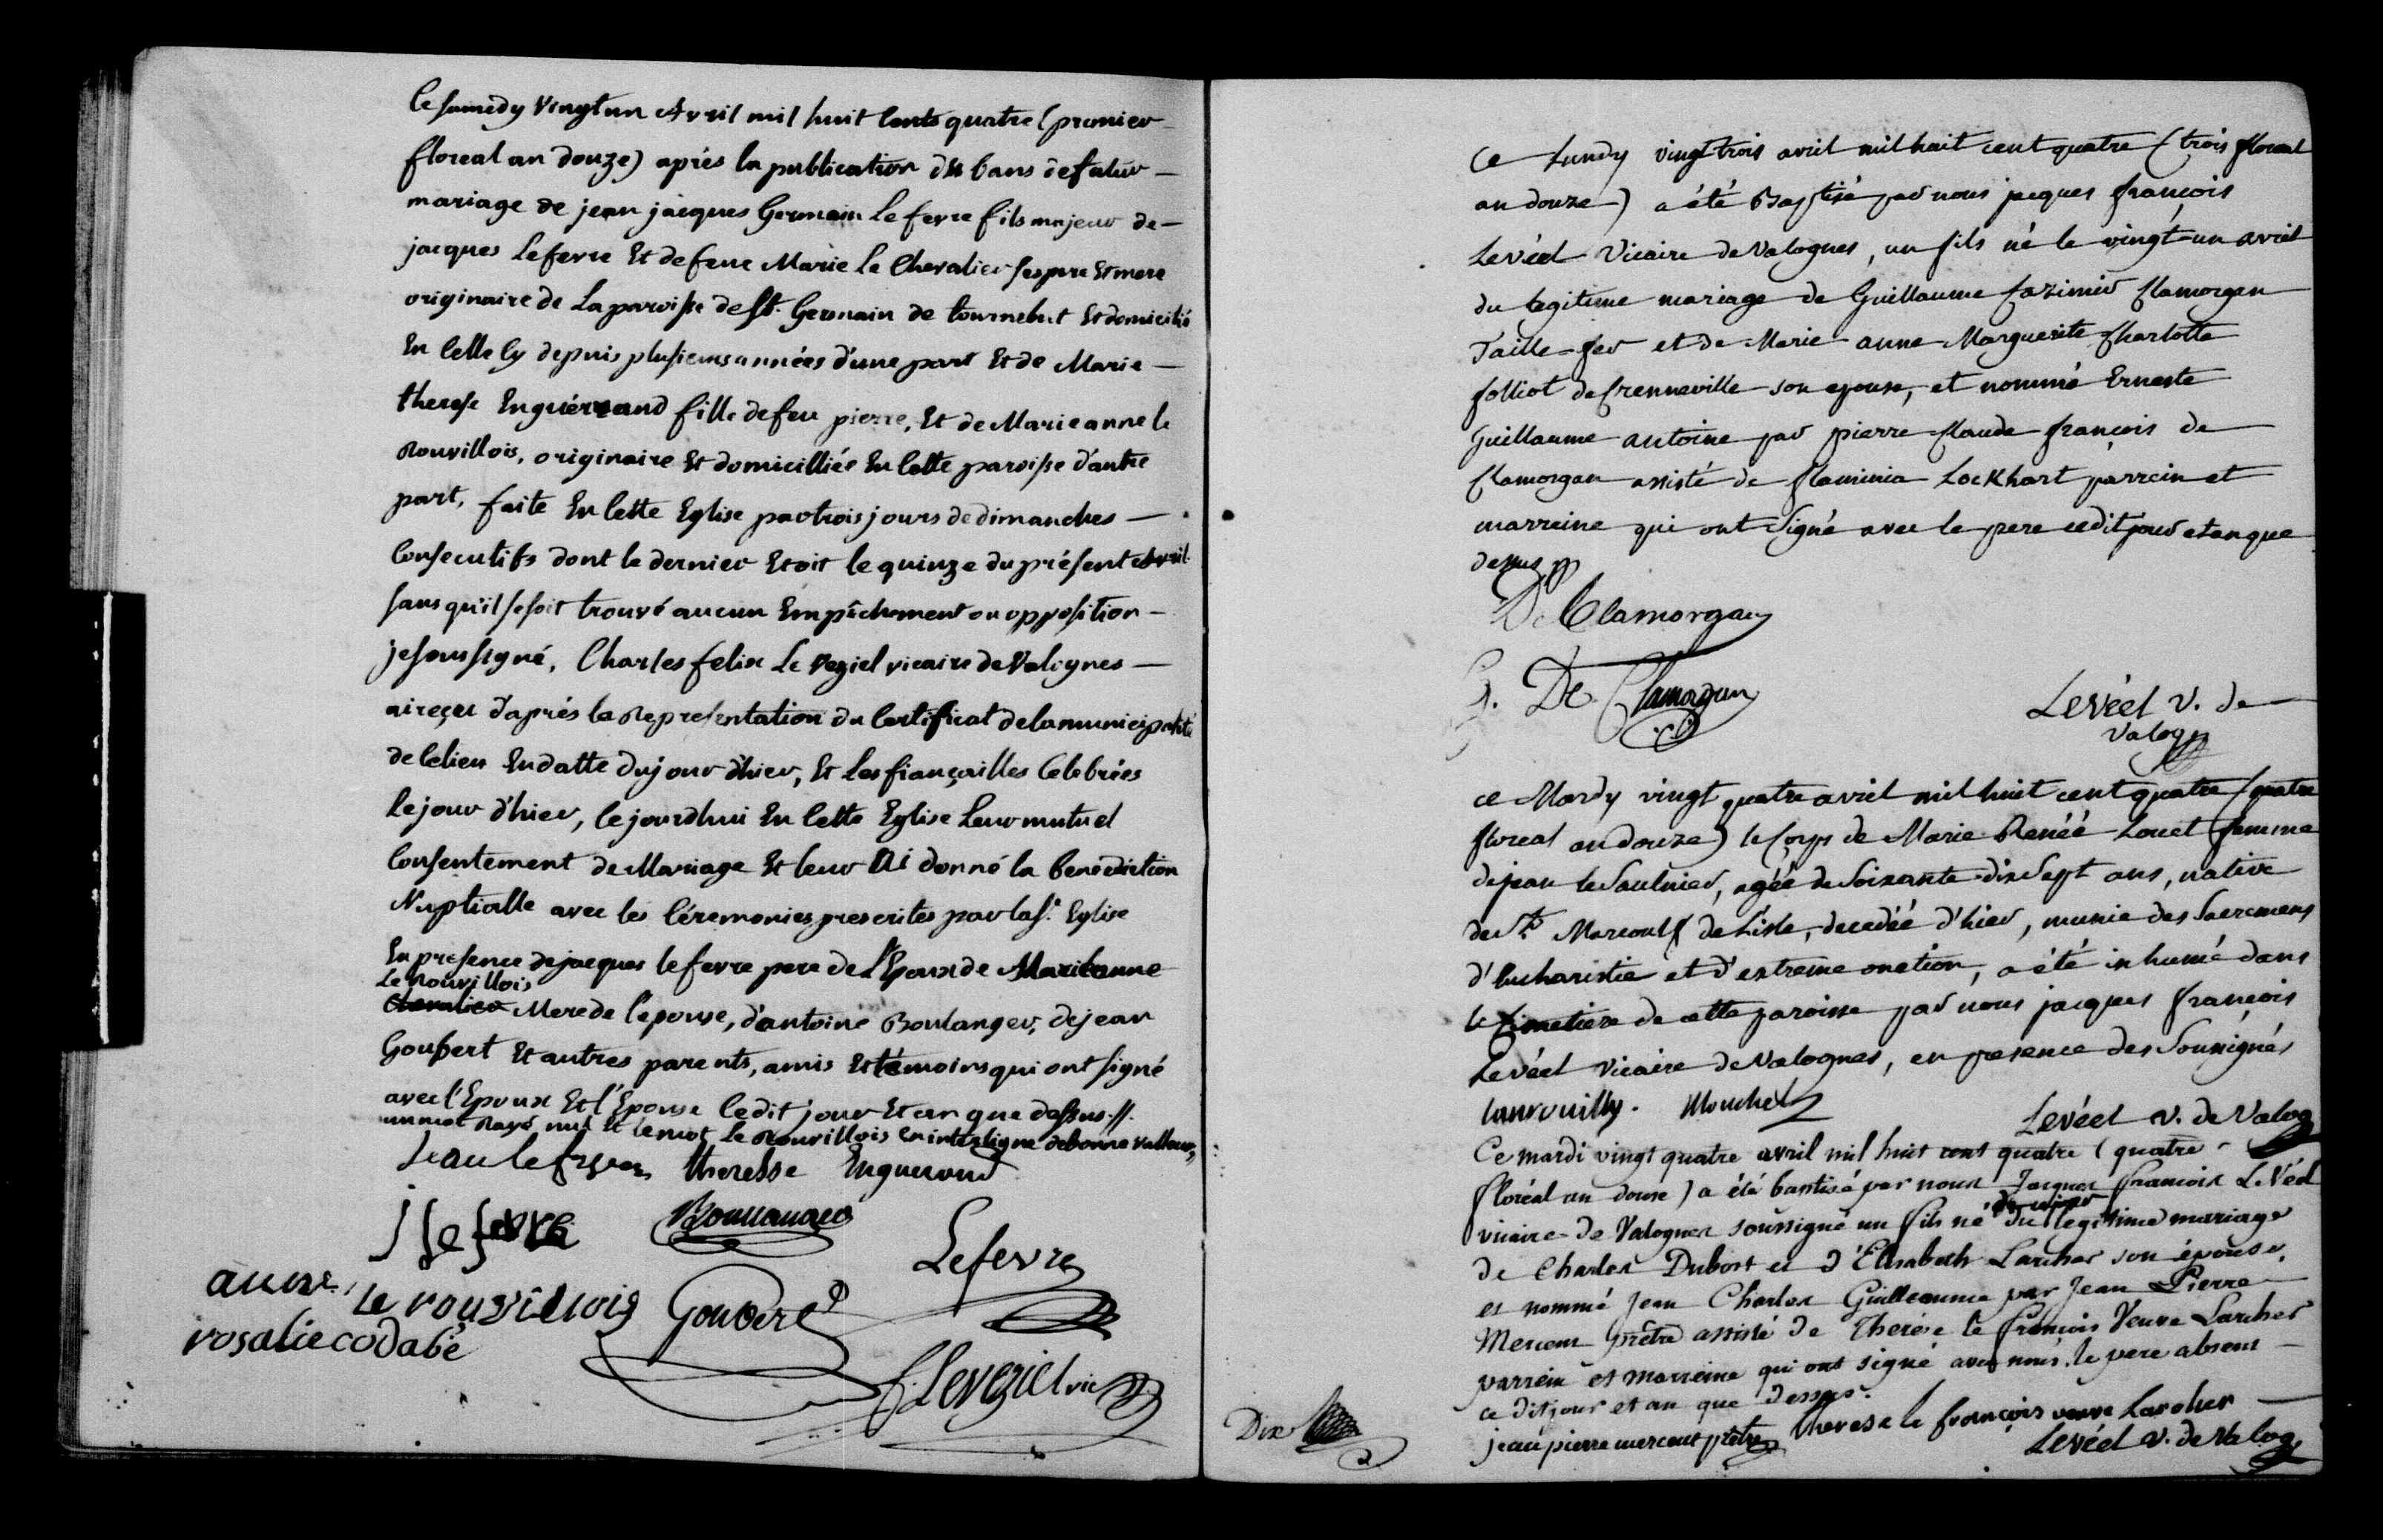 Ce samedy Vingt un Avril mil huit Cents quatre (premier
floreal an douze) aprés la publication du bans de futur
mariage de jean jacques Germain Lefevre fils majeur de
jacques Lefevre Et de feue Marie le Chevalier ses pere Et mere
originaire de La paroisse de St. Germain de tournebut Et domicilié
En Celle Cy depuis plusieurs années d'une part Et de Marie
therese Enguérrand fille de feu pierre, Et de Marie anne le
Rouvillois, originaire Et domicilliée En Cette paroisse d'autre
part, faite En Cette Eglise par trois jours de dimanches
Consecutifs dont le dernier Etoit le quinze du présent Avril
sans qu'il se soit trouvé aucun Empêchement ou opposition
je soussigné, Charles felix Le Veziel vicaire de Valognes
ai reçu d'aprés la Representation du Certificat de la municipalité
de Ce lieu En datte du jour d'hier, Et Les fiançailles Celebrées
Le jour d'hier, Ce jourdhui En Cette Eglise Leur mutuel
Consentement de Mariage Et leur Ai donné la benediction
Nuptialle avec les Céremonies prescrites par la Ste. Eglise
En presence de jacques lefevre pere de L'Epoux de Marie anne
Le Rouvillois
Chevalier Mere de l'epouse, d'antoine Boulanger, de jean
Goubert Et autres parents, amis Et témoins qui ont signé
avec l'Epoux Et l'Epouse Cedit jour Et an que dessus.//.
un mot Rayé nul Et le mot Le Rouvillois En interligne de bonne valleur,
Jean lefevre theresse Enguerand
J lefevre Boullanger
Lefevre
anne le rouvillois Goubert
rosalie codabé
f. LeVeziel vic
Ce Lundy vingt trois avril mil huit cent quatre (trois floreal
an douze) a été Baptisé par nous jacques françois
Levéel Vicaire de Valognes, un fils né le vingt-un avril
du legitime mariage de Guillaume Cazimir Clamorgan
Taille-fer et de Marie-anne-Marguerite-Charlotte
folliot de Crenneville son epouse, et nommé Erneste
Guillaume antoine par pierre Claude françois de
Clamorgan assisté de flaminia Lockhart parrein et
marreine qui ont Signé avec le pere cedit jour et an que
dessus
De Clamorgan
G. De Clamorgan
Levéel v. de
Valog
ce Mardy vingt quatre avril mil huit cent quatre (quatre
floreal an douze) le Corps de Marie Renéé Louet femme
de jean le Saulnier, agéé de Soixante-dix Sept ans, native
de St. Marcoulf de L'isle, decedéé d'hier, munie des Sacremens
d'Eucharistie et d'extreme onction, a été inhumé dans
le Cimetiere de cette paroisse par nous jacques françois
Levéel Vicaire de Valognes, en presence des Soussignés
Lanrouilly. Mouchel
Levéel v. de Valog
Ce mardi vingt quatre avril mil huit cent quatre (quatre
floréal an douze) a été baptisé par nous Jacques francois LeVéel
vicaire de Valognes soussigné un fils né du legitime mariage
de Charles Dubost et d'Elisabeth Larcher son épouse,
et nommé Jean Charles Guilleaume par Jean Pierre
Mercent prêtre assisté de Therése le françois Veuve Larcher
parrein et marreine qui ont signé avec nous, le pere absent
ce dit jour et an que dessus.
jean pierre mercent prêtre therese le françois veuve Larcher
Levéel v. de Valog
Dix